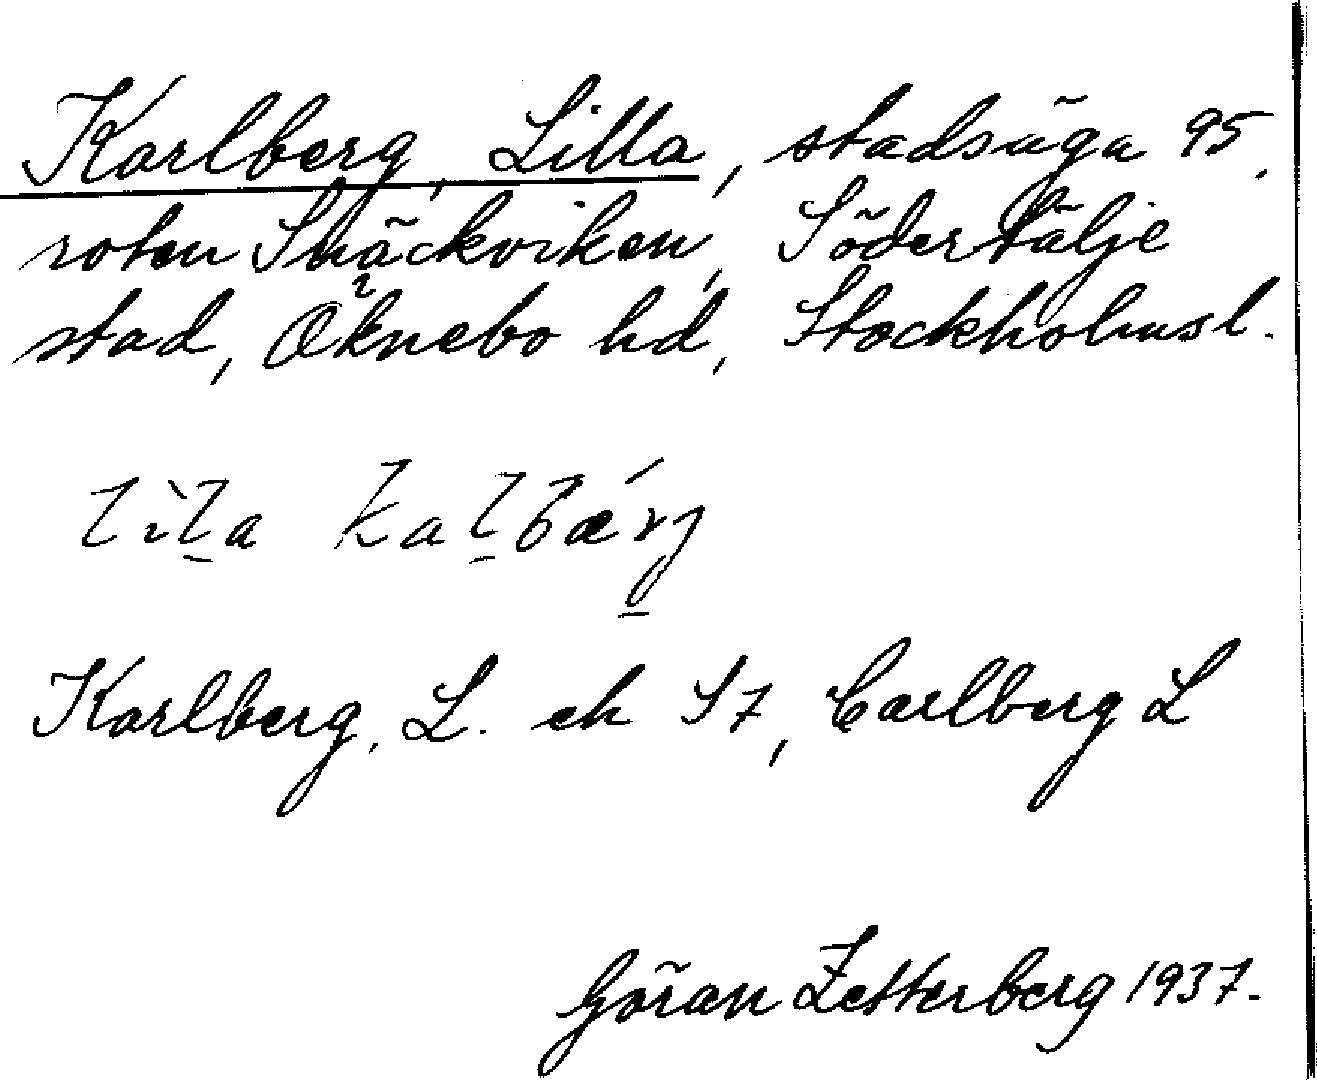 Karlberg, Lilla, stadsäga 95,
roten Snäckviken, Södertälje
stad, Öknebo hd, Stockholmsl.
lìl̠a kal̠bǽrg
Karlberg, L. ek S7, Carlberg L
Göran Zetterberg 1937.